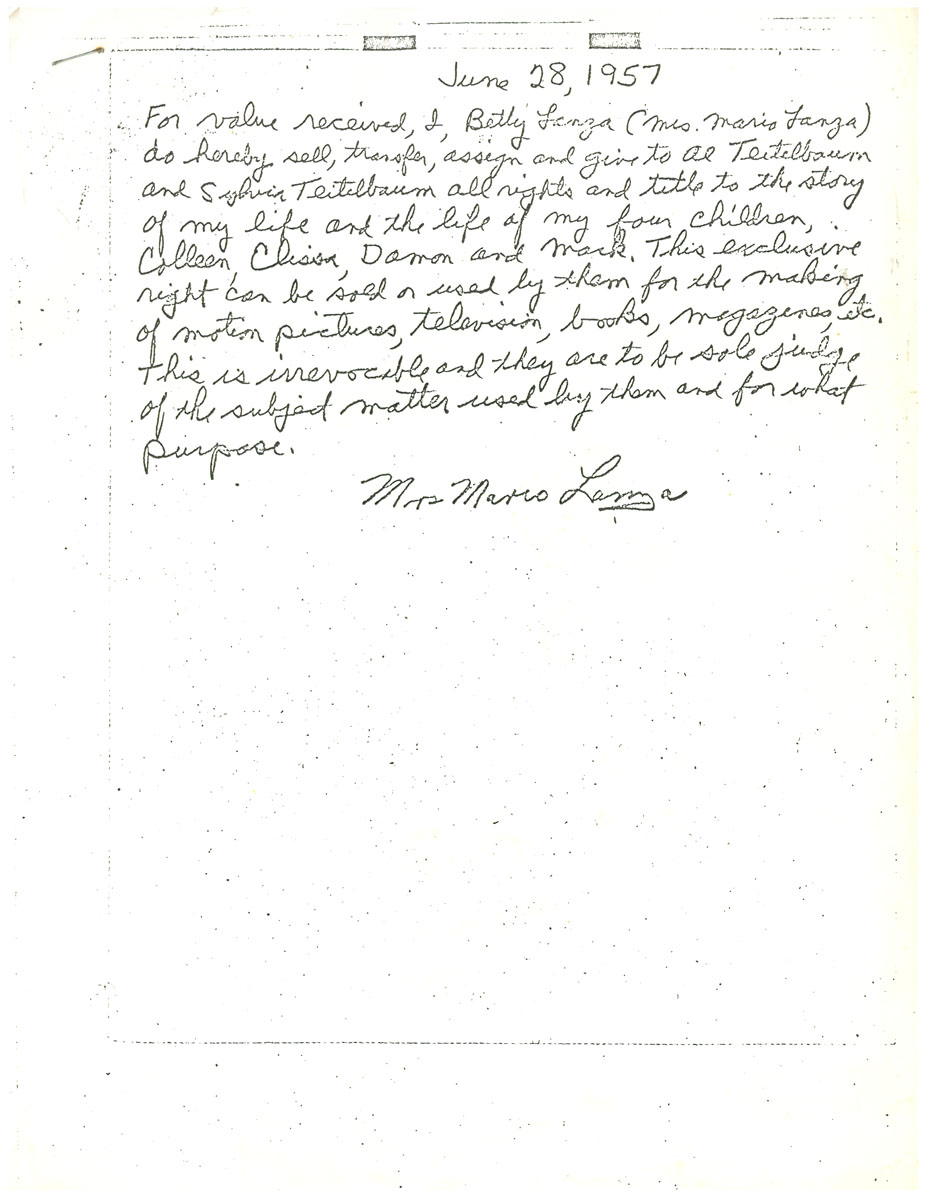 June 28, 1957
For value received, I, Betty Lanza (Mrs. Mario Lanza)
do hereby sell, transfer, assign and give to Al Teitelbaum
and Sylvia Teitelbaum all rights and title to the story
of my life and the life of my four children,
Colleen, Elissa, Damon and Mark. This exclusive
right can be sold or used by them for the making
of motion pictures, television, books, magazines, etc.
This is irrevocable and they are to be sole judge
of the subject matter used by them and for what
purpose.
Mrs Mario Lanza